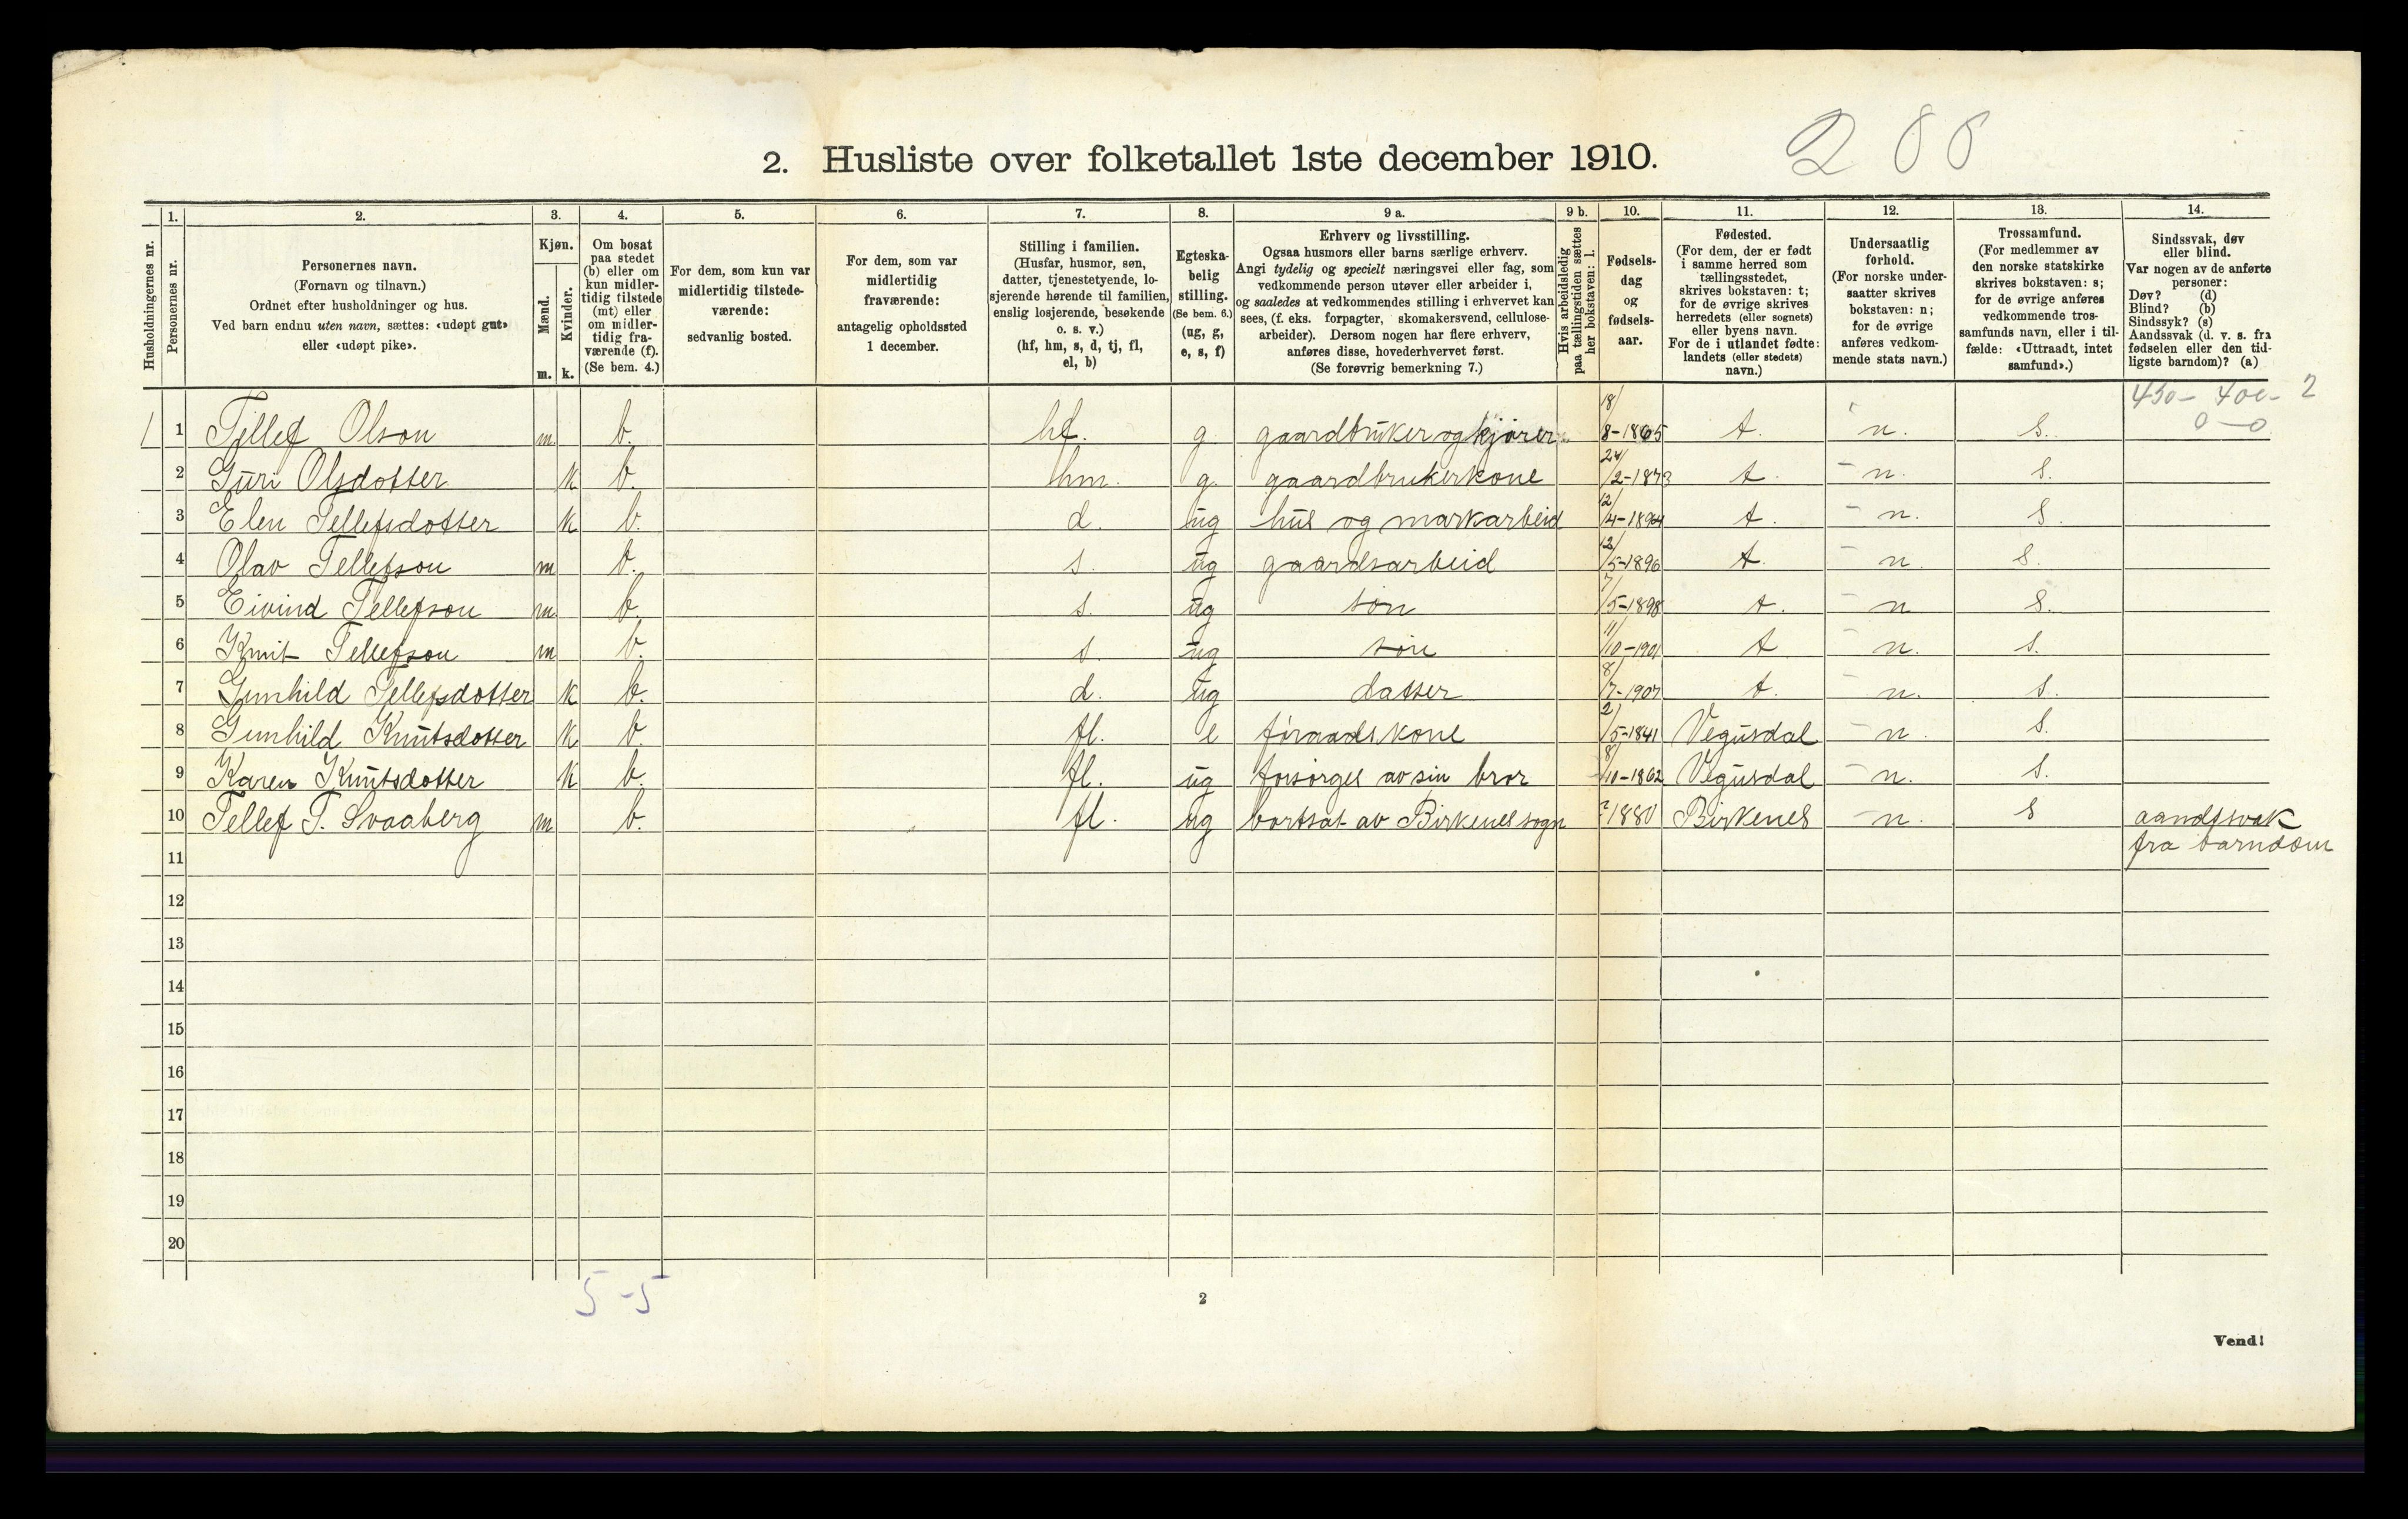 2. Husliste over folketallet 1ste december 1910.
1. 2. 3. 4. 5. 6. 7. 8. 9 a. 9 b. 10. 11. 12. 13. 14.
Husholdningernes nr.
Personernes nr.
Personernes navn.
(Fornavn og tilnavn.)
Ordnet efter husholdninger og hus.
Ved barn endnu uten navn, sættes: «udøpt gut»
eller «udøpt pike».
Kjøn.
Mænd.
m.
Kvinder.
k.
Om bosat
paa stedet
(b) eller om
kun midler-
tidig tilstede
(mt) eller
om midler-
tidig fra-
værende (f).
(Se bem. 4.)
For dem, som kun var
midlertidig tilstede-
værende:
sedvanlig bosted.
For dem, som var
midlertidig
fraværende:
antagelig opholdssted
1 december.
Stilling i familien.
(Husfar, husmor, søn,
datter, tjenestetyende, lo-
sjerende hørende til familien,
enslig losjerende, besøkende
o. s. v.)
(hf, hm, s, d, tj, fl,
el, b)
Egteska-
belig
stilling.
(Se bem. 6.)
(ug, g,
e, s, f)
Erhverv og livsstilling.
Ogsaa husmors eller barns særlige erhverv.
Angi tydelig og specielt næringsvei eller fag, som
vedkommende person utøver eller arbeider i,
og saaledes at vedkommendes stilling i erhvervet kan
sees, (f. eks. forpagter, skomakersvend, cellulose-
arbeider). Dersom nogen har flere erhverv,
anføres disse, hovederhvervet først.
(Se forøvrig bemerkning 7.)
Hvis arbeidsledig
paa tællingstiden sættes
her bokstaven: l.
Fødsels-
dag
og
fødsels-
aar.
Fødested.
(For dem, der er født
i samme herred som
tællingsstedet,
skrives bokstaven: t;
for de øvrige skrives
herredets (eller sognets)
eller byens navn.
For de i utlandet fødte:
landets (eller stedets)
navn.)
Undersaatlig
forhold.
(For norske under-
saatter skrives
bokstaven: n;
for de øvrige
anføres vedkom-
mende stats navn.)
Trossamfund.
(For medlemmer av
den norske statskirke
skrives bokstaven: s;
for de øvrige anføres
vedkommende tros-
samfunds navn, eller i til-
fælde: «Uttraadt, intet
samfund».)
Sindssvak, døv
eller blind.
Var nogen av de anførte
personer:
Døv? (d)
Blind? (b)
Sindssyk? (s)
Aandssvak (d. v. s. fra
fødselen eller den tid-
ligste barndom)? (a)
1 1 Tellef Olson m b. hf. g. gaardbruker og kjører 18/8-1865 t. n. s.
2 Guri Olsdotter k b. hm. g. gaardbrukerkone 24/2-1873 t. n. s.
3 Elen Tellefsdotter k b. d. ug hus og markarbeid 12/4-1894 t. n. s.
4 Olav Tellefson m b. s. ug gaardsarbeid 12/5-1896 t. n. s.
5 Eivind Tellefson m b. s. ug søn 7/5-1898 t. n s.
6 Knut Tellefson m b. s. ug søn 11/10-1901 t n. s.
7 Gunhild Tellefsdotter k b. d. ug datter 8/7-1907 t. n. s.
8 Gunhild Knutsdotter k b. fl. e føraadskone 2/5-1841 Vegusdal n. s.
9 Karen Knutsdotter k b. fl. ug forsørges av sin bror 8/10-1862 Vegusdal n. s.
10 Tellef T. Svaaberg m b. fl. ug bortsat av Birkenes sogn ?1880 Birkenes n. s aandssvak
11 fra barndom
12
13
14
15
16
17
18
19
20
5-5
2
Vend!